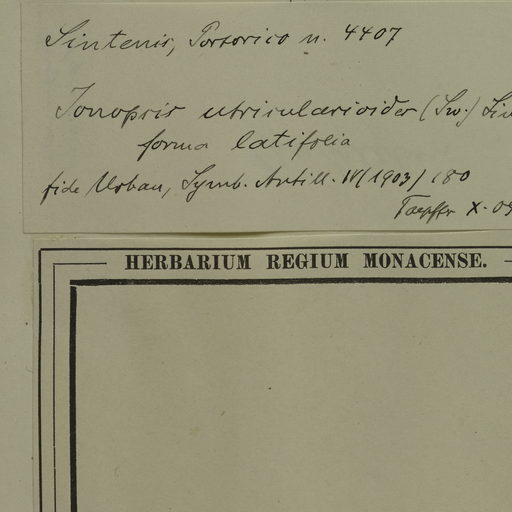 Sintenis, Portorico n. 4407
Ionopsis utricularioides (Sw.) Lin
forma latifolia
fide Urban, Symb. Antill. IV (1903) 180
Toepffer X. 09
HERBARIUM REGIUM MONACENSE.